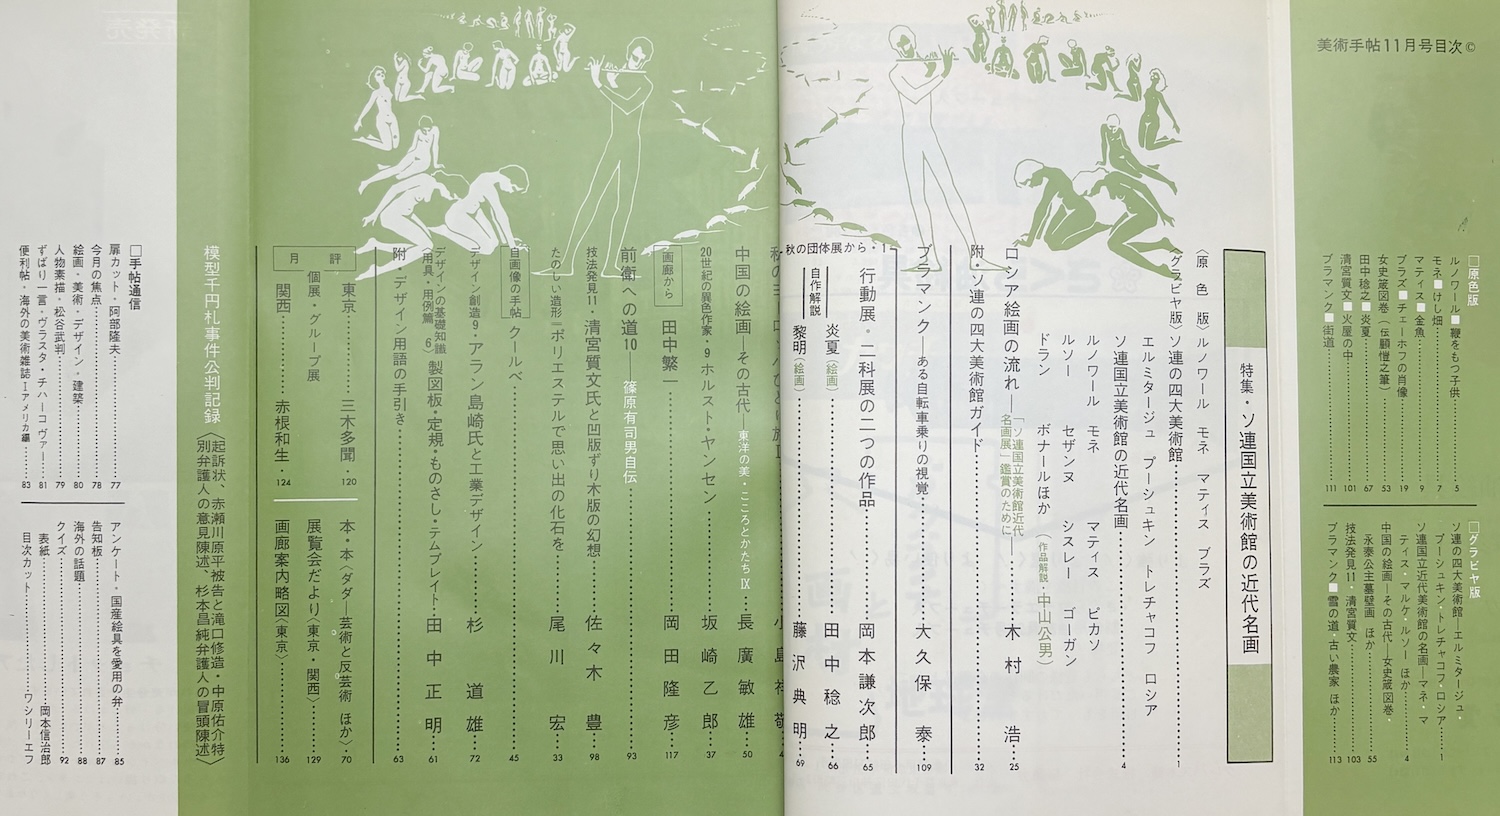 美術手帖11月号目次©
□原色版
ルノワール■鞭をもつ子供………5
モネ■けし畑………7
マティス■金魚………9
ブラズ■チェーホフの肖像………19
女史箴図巻（伝顧愷之筆）………53
田中稔之■炎夏………67
清宮質文■火屋の中………101
ブラマンク■街道………111
□グラビヤ版
ソ連の四大美術館―エルミタージュ・
プーシュキン・トレチャコフ・ロシア…1
ソ連国立近代美術館の名画―マネ・マ
ティス・マルケ・ルソー ほか………4
中国の絵画―その古代―女史箴図巻・
永泰公主墓壁画 ほか………55
技法発見11・清宮質文………103
ブラマンク■雪の道・古い農家 ほか………113
特集・ソ連国立美術館の近代名画
〈原色版〉ルノワール モネ マティス ブラズ
〈グラビヤ版〉ソ連の四大美術館………1
エルミタージュ プーシュキン トレチャコフ ロシア
ソ連国立美術館の近代名画………4
ルノワール モネ マティス ピカソ
ルソー セザンヌ シスレー ゴーガン
ドラン ボナールほか（作品解説・中山公男）
ロシア絵画の流れ―「ソ連国立美術館近代名画展」鑑賞のために―木村 浩…25
附・ソ連の四大美術館ガイド………32
ブラマンク―ある自転車乗りの視覚………大久保 泰…109
秋の団体展から・1
行動展・二科展の二つの作品………岡本謙次郎…65
自作解説
炎夏（絵画）………田中稔之…66
黎明（絵画）………藤沢典明…69
中国の絵画 その古代―東洋の美・こころとかたちⅨ…長廣敏雄…50
20世紀の異色作家・9 ホルスト・ヤンセン………坂崎乙郎…37
画廊から 田中繁一………岡田隆彦…117
前衛への道10―篠原有司男自伝………93
技法発見11・清宮質文氏と凹版ずり木版の幻想………佐々木 豊…98
たのしい造形＝ポリエステルで思い出の化石を………尾川 宏…33
自画像の手帖 クールベ………45
デザイン創造9・アラン島崎氏と工業デザイン………杉 道雄…72
デザインの基礎知識〈用具・用例篇 6〉製図板・定規・ものさし・テムプレイト…田中正明…61
附・デザイン用語の手引き………63
月評
東京………三木多聞・120
個展・グループ展
関西………赤根和生・124
本・本〈ダダ―芸術と反芸術 ほか〉…70
展覧会だより〈東京・関西〉………129
画廊案内略図〈東京〉………136
模型千円札事件公判記録〈起訴状、赤瀬川原平被告と滝口修造・中原佑介特別弁護人の意見陳述、杉本昌純弁護人の冒頭陳述〉
□手帖通信
扉カット・阿部隆夫………77
今月の焦点………78
絵画・美術・デザイン・建築………80
人物素描・松谷武判………79
ずばり一言・ヴラスタ・チハーコヴァー………81
便利帖・海外の美術雑誌Ⅰアメリカ編………83
アンケート・国産絵具を愛用の弁………85
告知板………87
海外の話題………88
クイズ………92
表紙………岡本信治郎
目次カット………ワシリーエフ